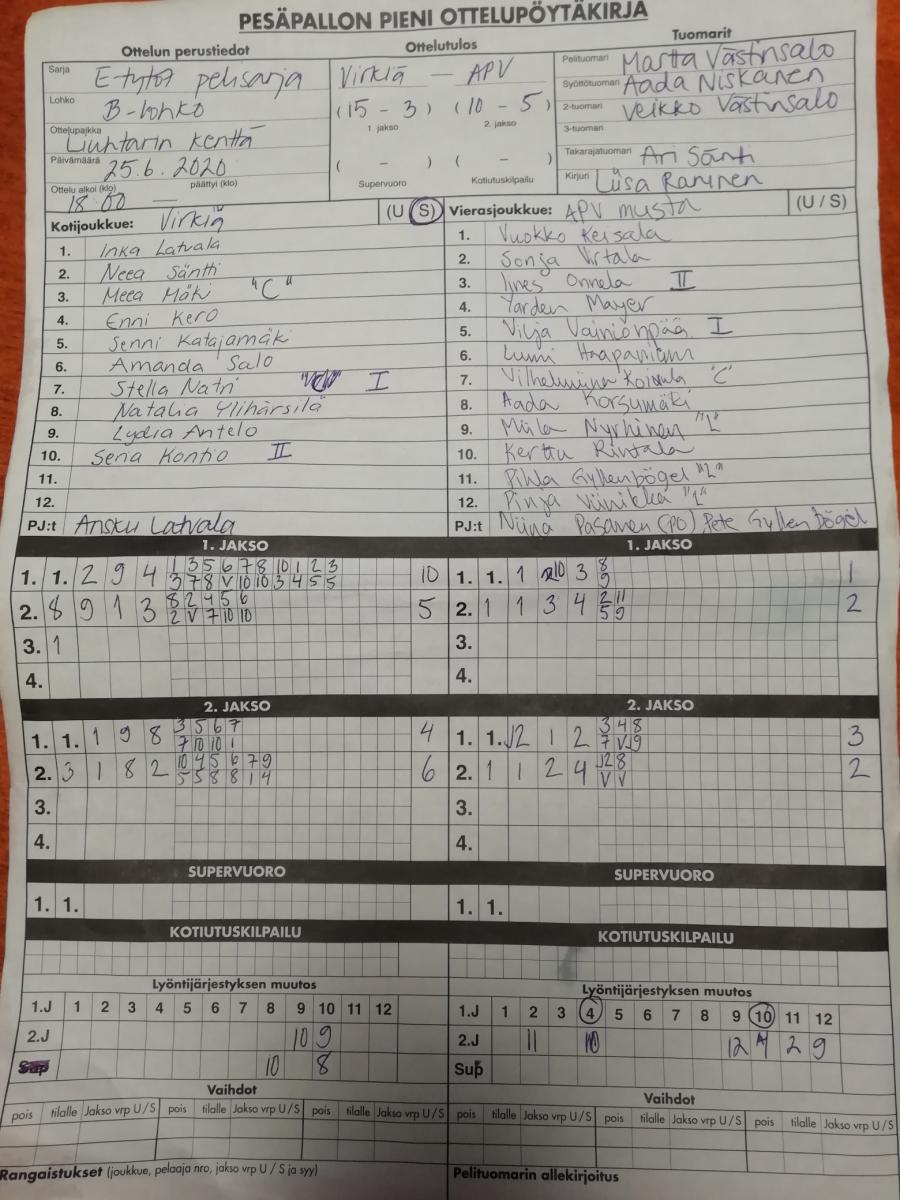 PESÄPALLON PIENI OTTELUPÖYTÄKIRJA
Ottelun perustiedot
Ottelutulos
Tuomarit
Sarja E-tytöt pelisarja
Lohko B-lohko
Ottelupaikka Liuhtarin kenttä
Päivämäärä 25.6.2020
Ottelu alkoi (klo) päättyi (klo)
18.00 —
Virkiä — APV
(15 - 3) (10 - 5)
1. jakso 2. jakso
( - ) ( - )
Supervuoro Kotiutuskilpailu
Pelituomari Martta Västinsalo
Syöttötuomari Aada Niskanen
2-tuomari Veikko Västinsalo
3-tuomari
Takarajatuomari Ari Säntti
Kirjuri Liisa Raninen
Kotijoukkue: Virkiä (U S)
1. Inka Latvala
2. Neea Säntti
3. Meea Mäki "C"
4. Enni Kero
5. Senni Katajamäki
6. Amanda Salo
7. Stella Natri I
8. Natalia Ylihärsilä
9. Lydia Antelo
10. Senia Kontio II
11.
12.
PJ:t Ansku Latvala
Vierasjoukkue: APV musta (U / S)
1. Vuokko Keisala
2. Sonja Virtala
3. Iines Onnela II
4. Yarden Mayer
5. Vilja Vainionpää I
6. Lumi Haapaniemi
7. Vilhelmiina Koivula "C"
8. Aada Korsumäki
9. Miila Nyrhinen "L"
10. Kerttu Rintala
11. Pihla Gyllenbögel "L"
12. Pinja Viinikka "L"
PJ:t Niina Pasanen (PO), Pete Gyllenbögel
1. JAKSO
1. 1. 2 9 4 1 3 5 6 7 8 10 1 2 3 10
3 7 8 V 10 10 3 4 5 5
2. 8 9 1 3 8 2 4 5 6 5
2 V 7 10 10
3. 1
4.
1. JAKSO
1. 1. 1 10 3 8 1
9
2. 1 1 3 4 2 11 2
5 9
3.
4.
2. JAKSO
1. 1. 1 9 8 3 5 6 7 4
7 10 10 1
2. 3 1 8 2 10 4 5 6 7 9 6
5 5 8 8 1 4
3.
4.
2. JAKSO
1. 1. 12 1 2 3 4 8 3
7 V 9
2. 1 1 2 4 12 8 2
V V
3.
4.
SUPERVUORO
1. 1.
SUPERVUORO
1. 1.
KOTIUTUSKILPAILU
KOTIUTUSKILPAILU
Lyöntijärjestyksen muutos
1.J 1 2 3 4 5 6 7 8 9 10 11 12
2.J 10 9
Sup 10 8
Lyöntijärjestyksen muutos
1.J 1 2 3 4 5 6 7 8 9 10 11 12
2.J 11 10 12 4 2 9
Sup
Vaihdot
pois tilalle Jakso vrp U / S pois tilalle Jakso vrp U / S pois tilalle Jakso vrp U / S
Vaihdot
pois tilalle Jakso vrp U / S pois tilalle Jakso vrp U / S pois tilalle Jakso vrp U / S
Rangaistukset (joukkue, pelaaja nro, jakso vrp U / S ja syy)
Pelituomarin allekirjoitus